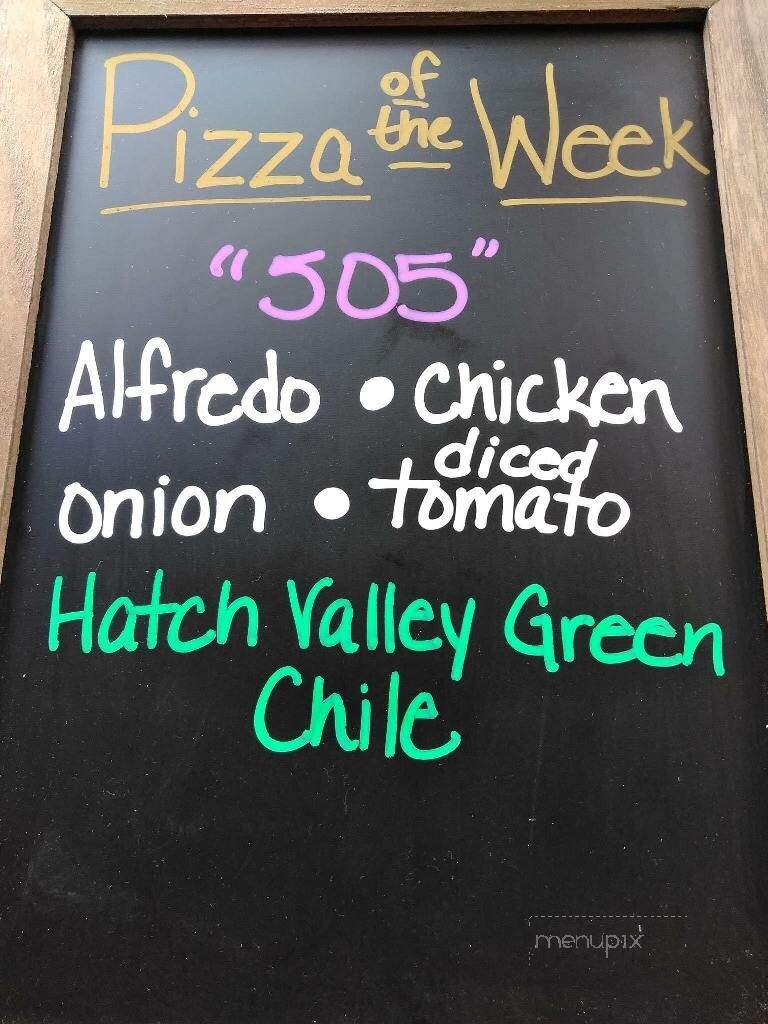 Pizza of the Week
"505"
Alfredo • Chicken
onion • diced tomato
Hatch Valley Green
Chile
menupix